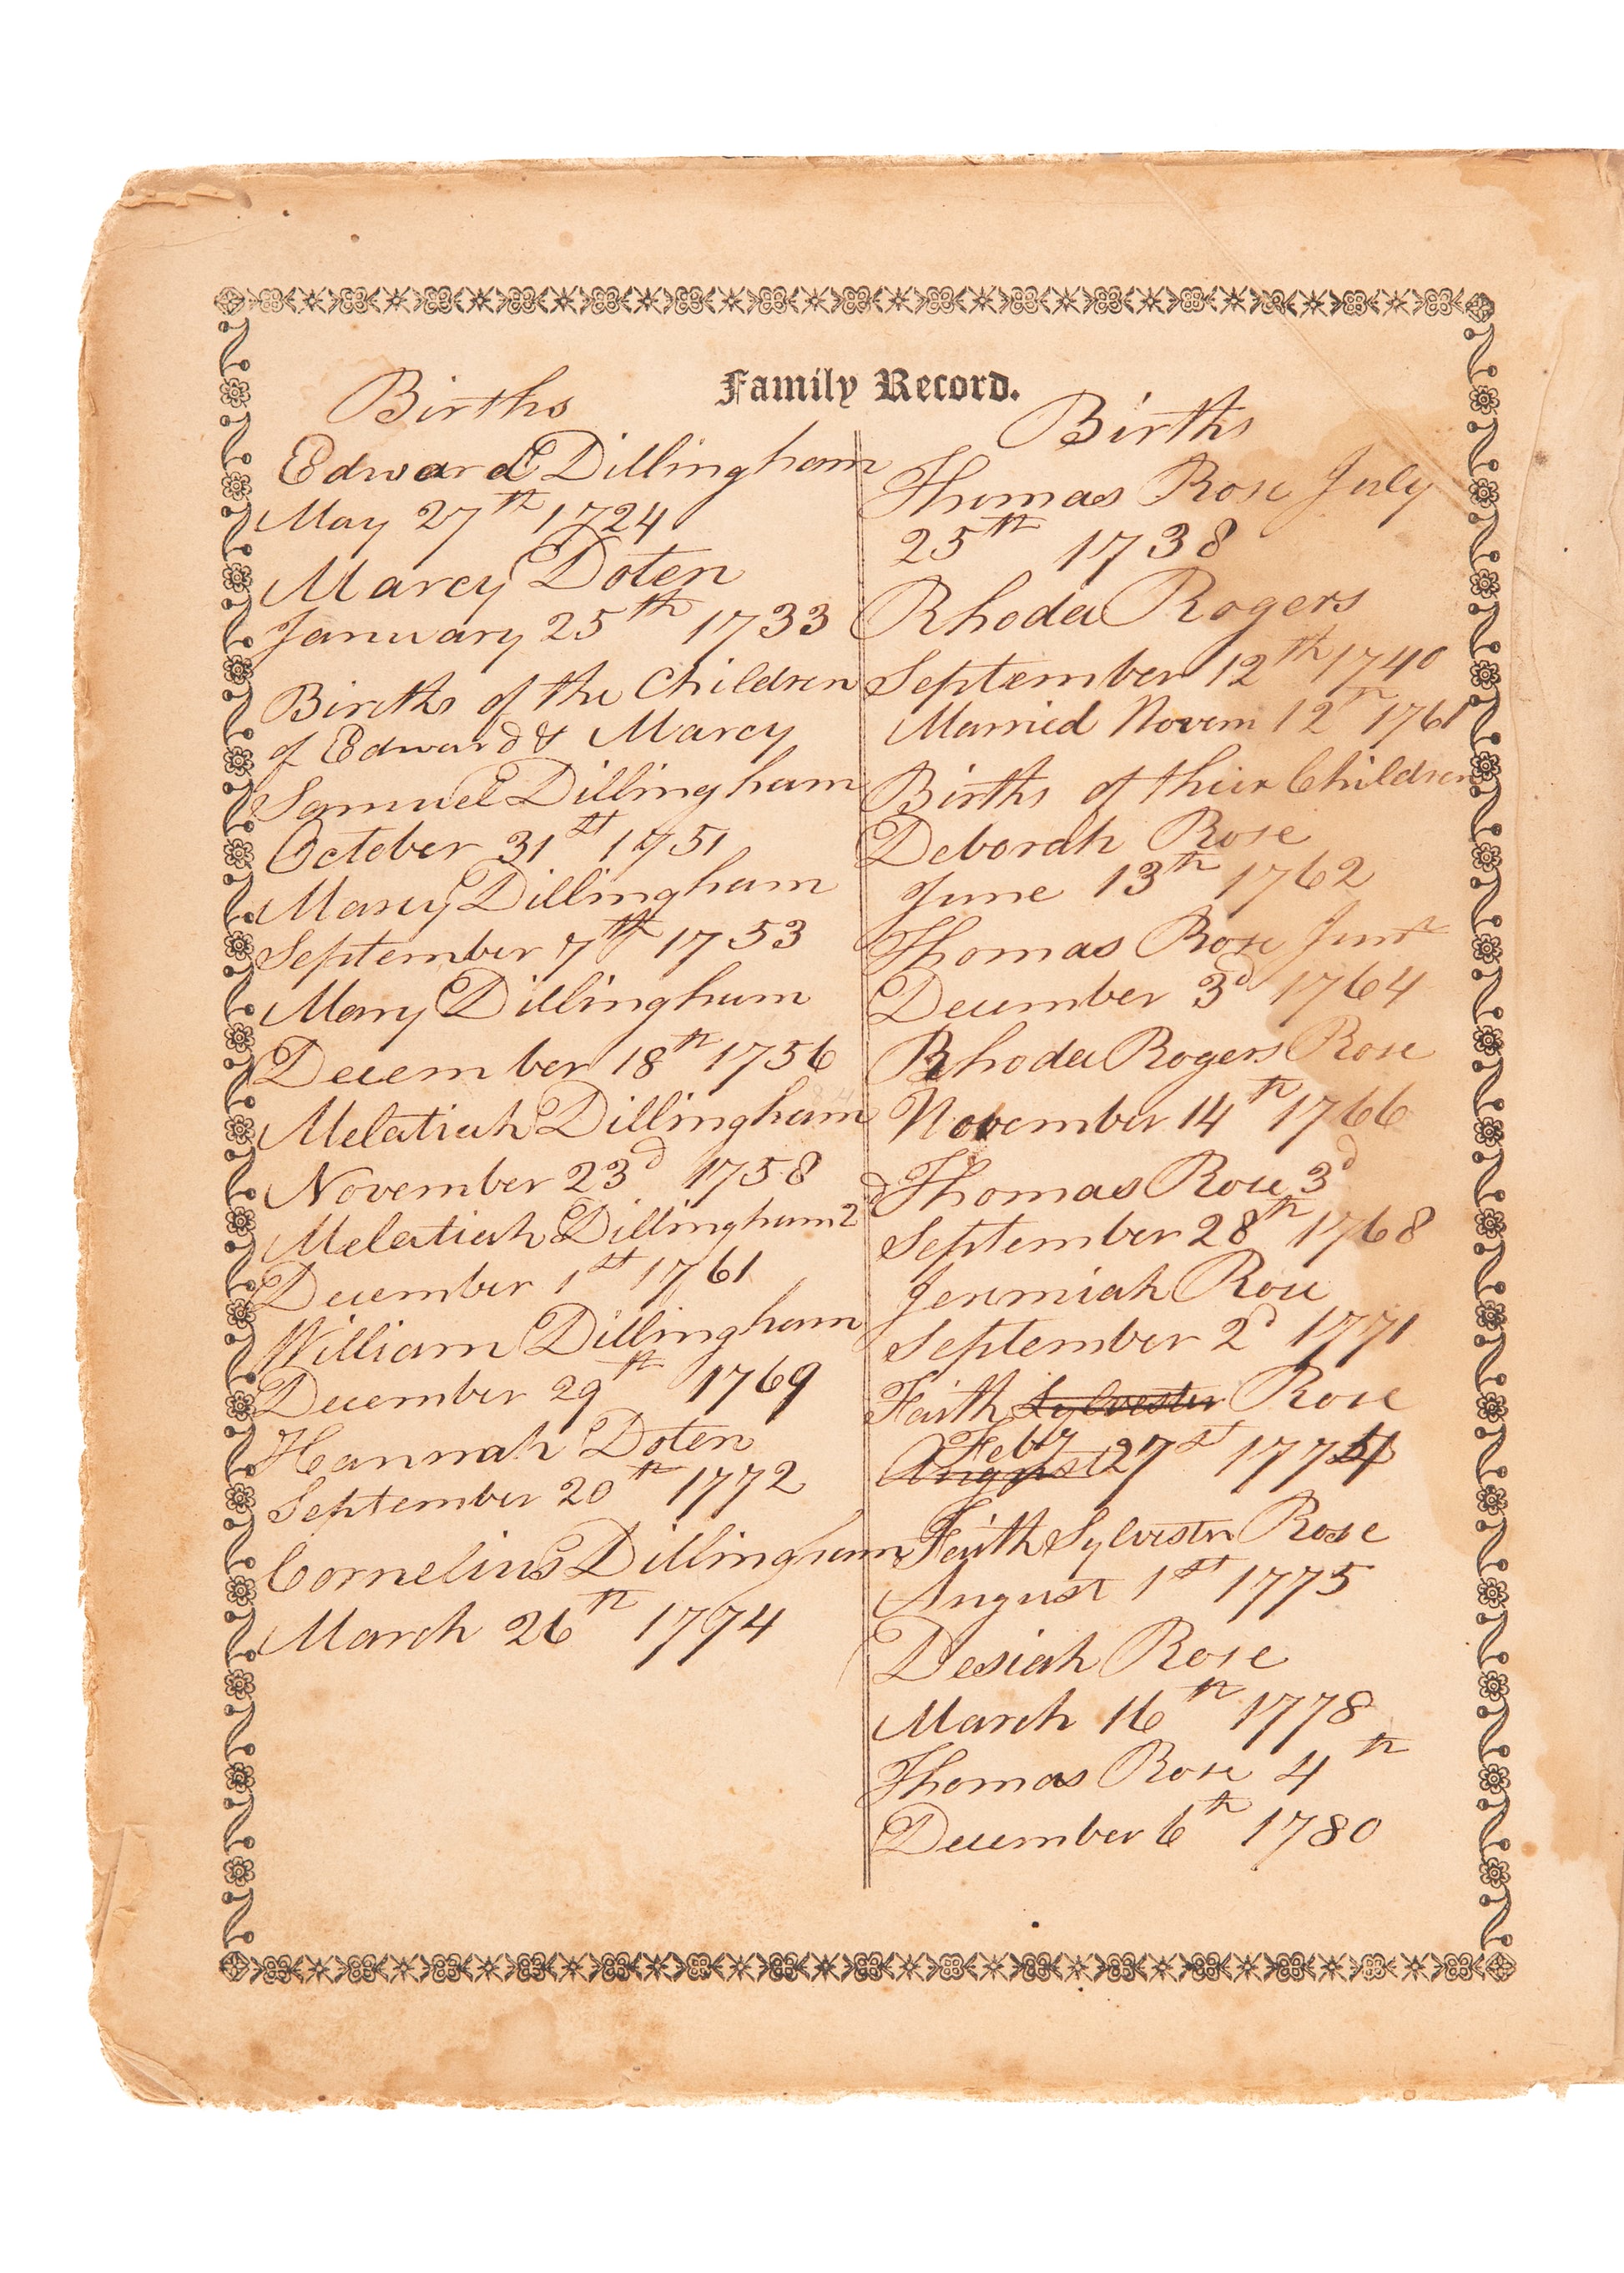 Family Record.
Births
Edward Dillingham
May 27th 1724
Marcy Doten
January 25th 1733
Births of the Children
of Edward & Marcy
Samuel Dillingham
October 31st 1751
Marcy Dillingham
September 7th 1753
Mary Dillingham
December 18th 1756
Melatiah Dillingham
November 23d 1758
Melatiah Dillingham 2d
December 1st 1761
William Dillingham
December 29th 1769
Hannah Doten
September 20th 1772
Cornelius Dillingham
March 26th 1774
Births
Thomas Rose July
25th 1738
Rhoda Rogers
September 12th 1740
Married Novem 12th 1761
Births of their Children
Deborah Rose
June 13th 1762
Thomas Rose Junr
December 3d 1764
Rhoda Rogers Rose
November 14th 1766
Thomas Rose 3d
September 28th 1768
Jeremiah Rose
September 2d 1771
Faith Sylvester Rose
Feby
August 27st 1774
Faith Sylvester Rose
August 1st 1775
Desiah Rose
March 16th 1778
Thomas Rose 4th
December 6th 1780